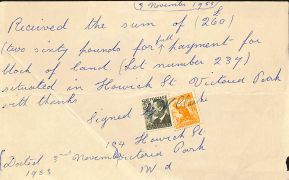 3 November 1953
Received the sum of (£260)
(two sixty pounds for full payment for
block of land (Lot number 239)
situated in Howick St Victoria Park
with thanks
Signed
194 Howick St.
(Dated 3rd November Victoria Park
1953 W A